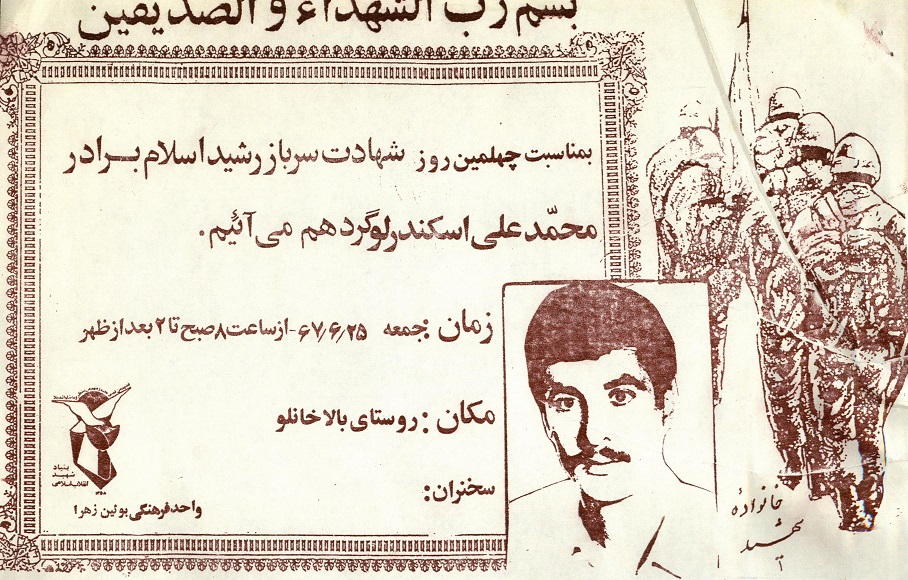 بسم رب الشهداء و الصدیقین
بمناسبت چهلمین روز شهادت سرباز رشید اسلام برادر
محمّد علی اسکندرلو گرد هم می‌آئیم.
زمان: جمعه ۶۷/۶/۲۵- از ساعت ۸ صبح تا ۲ بعد از ظهر
مکان: روستای بالا خانلو
سخنران:
بنیاد
شهید
انقلاب اسلامی
واحد فرهنگی بوئین زهرا
خانواده
شهید